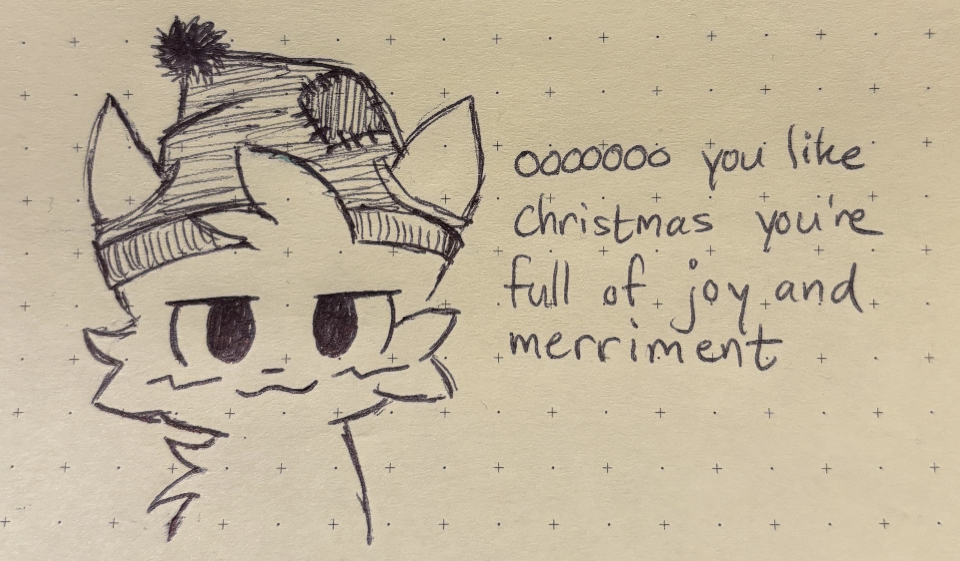 ooooooo you like
Christmas you're
full of joy and
merriment